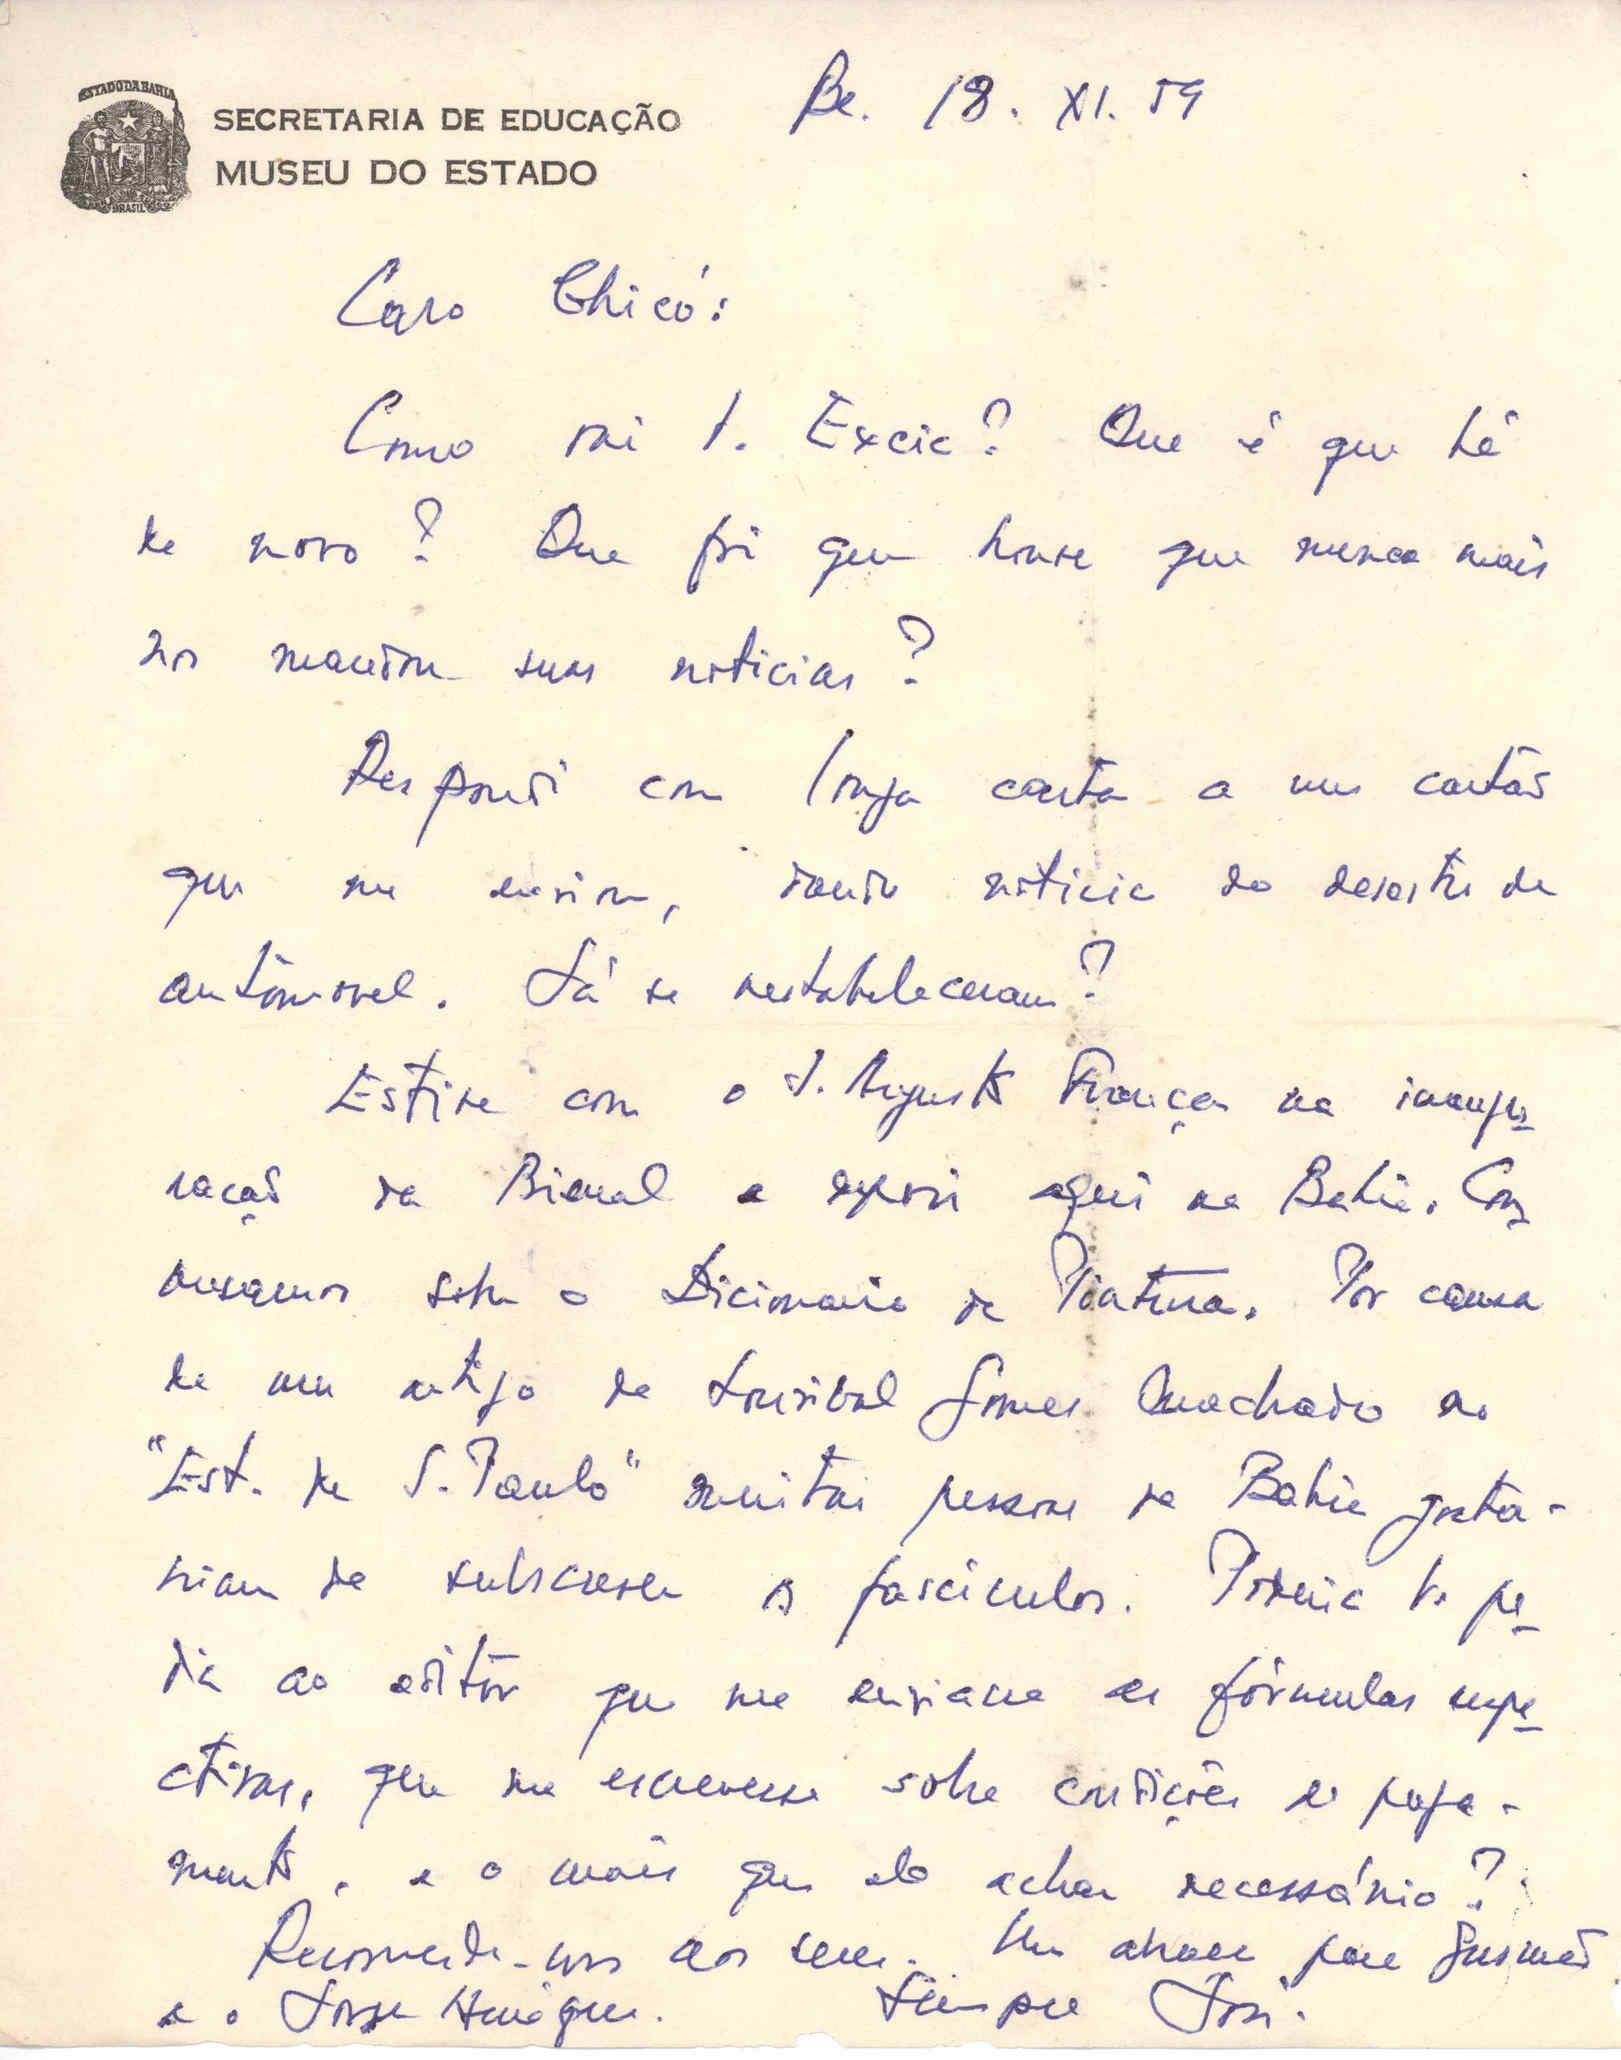 ESTADO DA BAHIA
BRASIL
SECRETARIA DE EDUCAÇÃO
MUSEU DO ESTADO
Ba. 18. XI. 59
Caro Chicó:
Como vai V. Excia? Que é que há
de novo? Que foi que houve que nunca mais
nos mandou suas noticias?
Respondi com longa carta a um cartão
que me enviou, dando noticia do desastre de
automovel. Já se restabeleceram?
Estive com o J. Augusto França na inaugu-
ração da Bienal e depois aqui na Bahia. Con-
versamos sobre o Dicionario de Pintura. Por causa
de um artigo de Lourival Gomes Machado no
"Est. de S. Paulo" muitas pessoas da Bahia gosta-
riam de subscrever os fasciculos. Poderia V. pe-
dir ao editôr que me enviasse as fórmulas respe-
ctivas, que me escrevesse sobre condições de paga-
mento, e o mais que ele achar necessário?
Recomende-nos aos seus. Um abraço para Gusmão
e o Jorge Henriques. Sempre José.